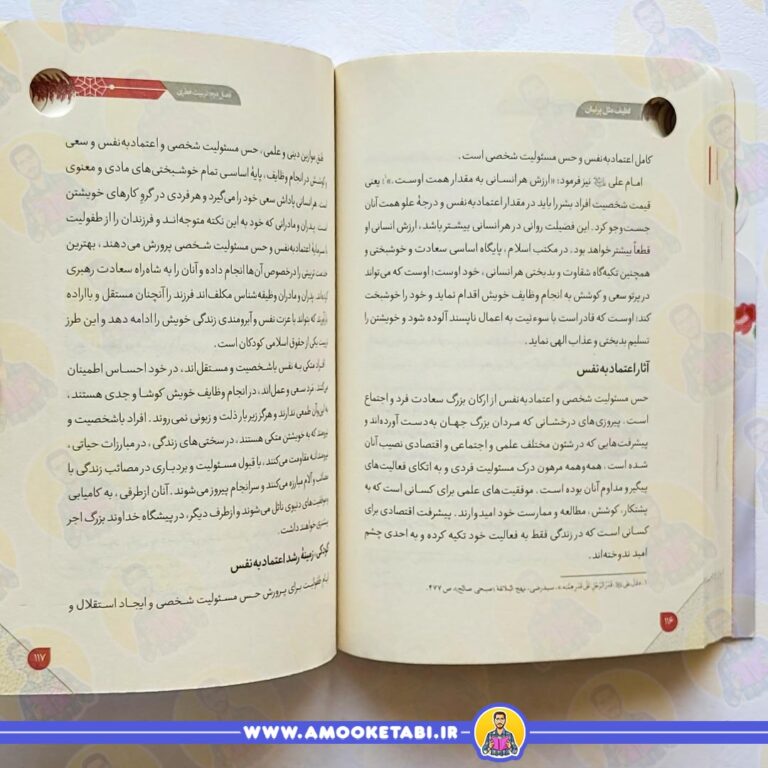 لطیف مثل پرنیان
کامل اعتماد به نفس و حس مسئولیت شخصی است.
امام علی نیز فرمود: «ارزش هر انسانی به مقدار همت اوست.»۱ یعنی
قیمت شخصیت افراد بشر را باید در مقدار اعتماد به نفس و درجهٔ علو همت آنان
جست‌وجو کرد. این فضیلت روانی در هر انسانی بیشتر باشد، ارزش انسانی او
قطعاً بیشتر خواهد بود. در مکتب اسلام، پایگاه اساسی سعادت و خوشبختی و
همچنین تکیه‌گاه شقاوت و بدبختی هر انسانی، خود اوست؛ اوست که می‌تواند
در پرتو سعی و کوشش به انجام وظایف خویش اقدام نماید و خود را خوشبخت
کند؛ اوست که قادر است با سوء نیت به اعمال ناپسند آلوده شود و خویشتن را
تسلیم بدبختی و عذاب الهی نماید.
آثار اعتماد به نفس
حس مسئولیت شخصی و اعتماد به نفس از ارکان بزرگ سعادت فرد و اجتماع
است. پیروزی‌های درخشانی که مردان بزرگ جهان به‌دست آورده‌اند و
پیشرفت‌هایی که در شئون مختلف علمی و اجتماعی و اقتصادی نصیب آنان
شده است، همه‌وهمه مرهون درک مسئولیت فردی و به اتکای فعالیت‌های
پیگیر و مداوم آنان بوده است. موفقیت‌های علمی برای کسانی است که به
پشتکار، کوشش، مطالعه و ممارست خود امیدوارند. پیشرفت اقتصادی برای
کسانی است که در زندگی فقط به فعالیت خود تکیه کرده و به احدی چشم
امید ندوخته‌اند.
۱. سیدرضی، نهج البلاغة (صبحی صالح)، ص ۴۷۷.
۱۱۶
فصل دوم: تربیت فطری
طبق موازین دینی و علمی، حس مسئولیت شخصی و اعتماد به نفس و سعی
و کوشش در انجام وظایف، پایهٔ اساسی تمام خوشبختی‌های مادی و معنوی
است. هر انسانی پاداش سعی خود را می‌گیرد و هر فردی در گرو کارهای خویشتن
است. پدران و مادرانی که خود به این نکته متوجه‌اند و فرزندان را از طفولیت
با سرمایهٔ اعتماد به نفس و حس مسئولیت شخصی پرورش می‌دهند، بهترین
خدمت تربیتی را درخصوص آن‌ها انجام داده و آنان را به شاه‌راه سعادت رهبری
کرده‌اند. پدران و مادران وظیفه‌شناس مکلف‌اند فرزند را آنچنان مستقل و بااراده
بار آورند که بتواند با عزت نفس و آبرومندی زندگی خویش را ادامه دهد و این طرز
تربیت یکی از حقوق اسلامی کودکان است.
افراد متکی به نفس باشخصیت و مستقل‌اند، در خود احساس اطمینان
می‌کنند. مرد سعی و عمل‌اند، در انجام وظایف خویش کوشا و جدی هستند،
به این‌وآن طمعی ندارند و هرگز زیر بار ذلت و زبونی نمی‌روند. افراد باشخصیت و
نیرومند که به خویشتن متکی هستند، در سختی‌های زندگی، در مبارزات حیاتی،
نیرومندانه مقاومت می‌کنند، با قبول مسئولیت و بردباری در مصائب زندگی با
مصائب و آلام مبارزه می‌کنند و سرانجام پیروز می‌شوند. آنان ازطرفی، به کامیابی
و موفقیت‌های دنیوی نائل می‌شوند و ازطرف دیگر، در پیشگاه خداوند بزرگ اجر
بیشتری خواهند داشت.
کودکی، زمینهٔ رشد اعتماد به نفس
ایام طفولیت برای پرورش حس مسئولیت شخصی و ایجاد استقلال و
۱۱۷
WWW.AMOOKETABI.IR